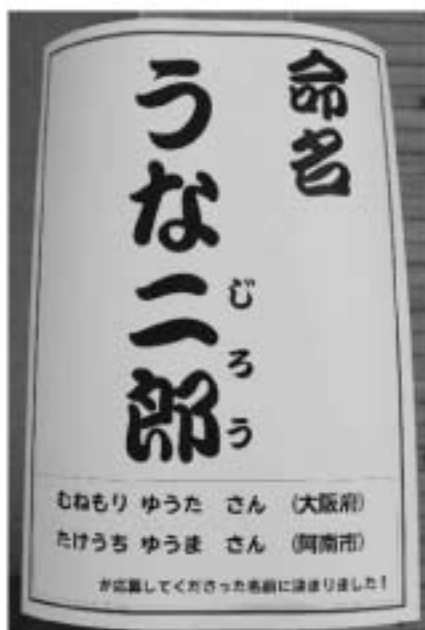 命名
うな二郎
じろう
むねもり ゆうた さん (大阪府)
たけうち ゆうま さん (阿南市)
が応募してくださった名前に決まりました!